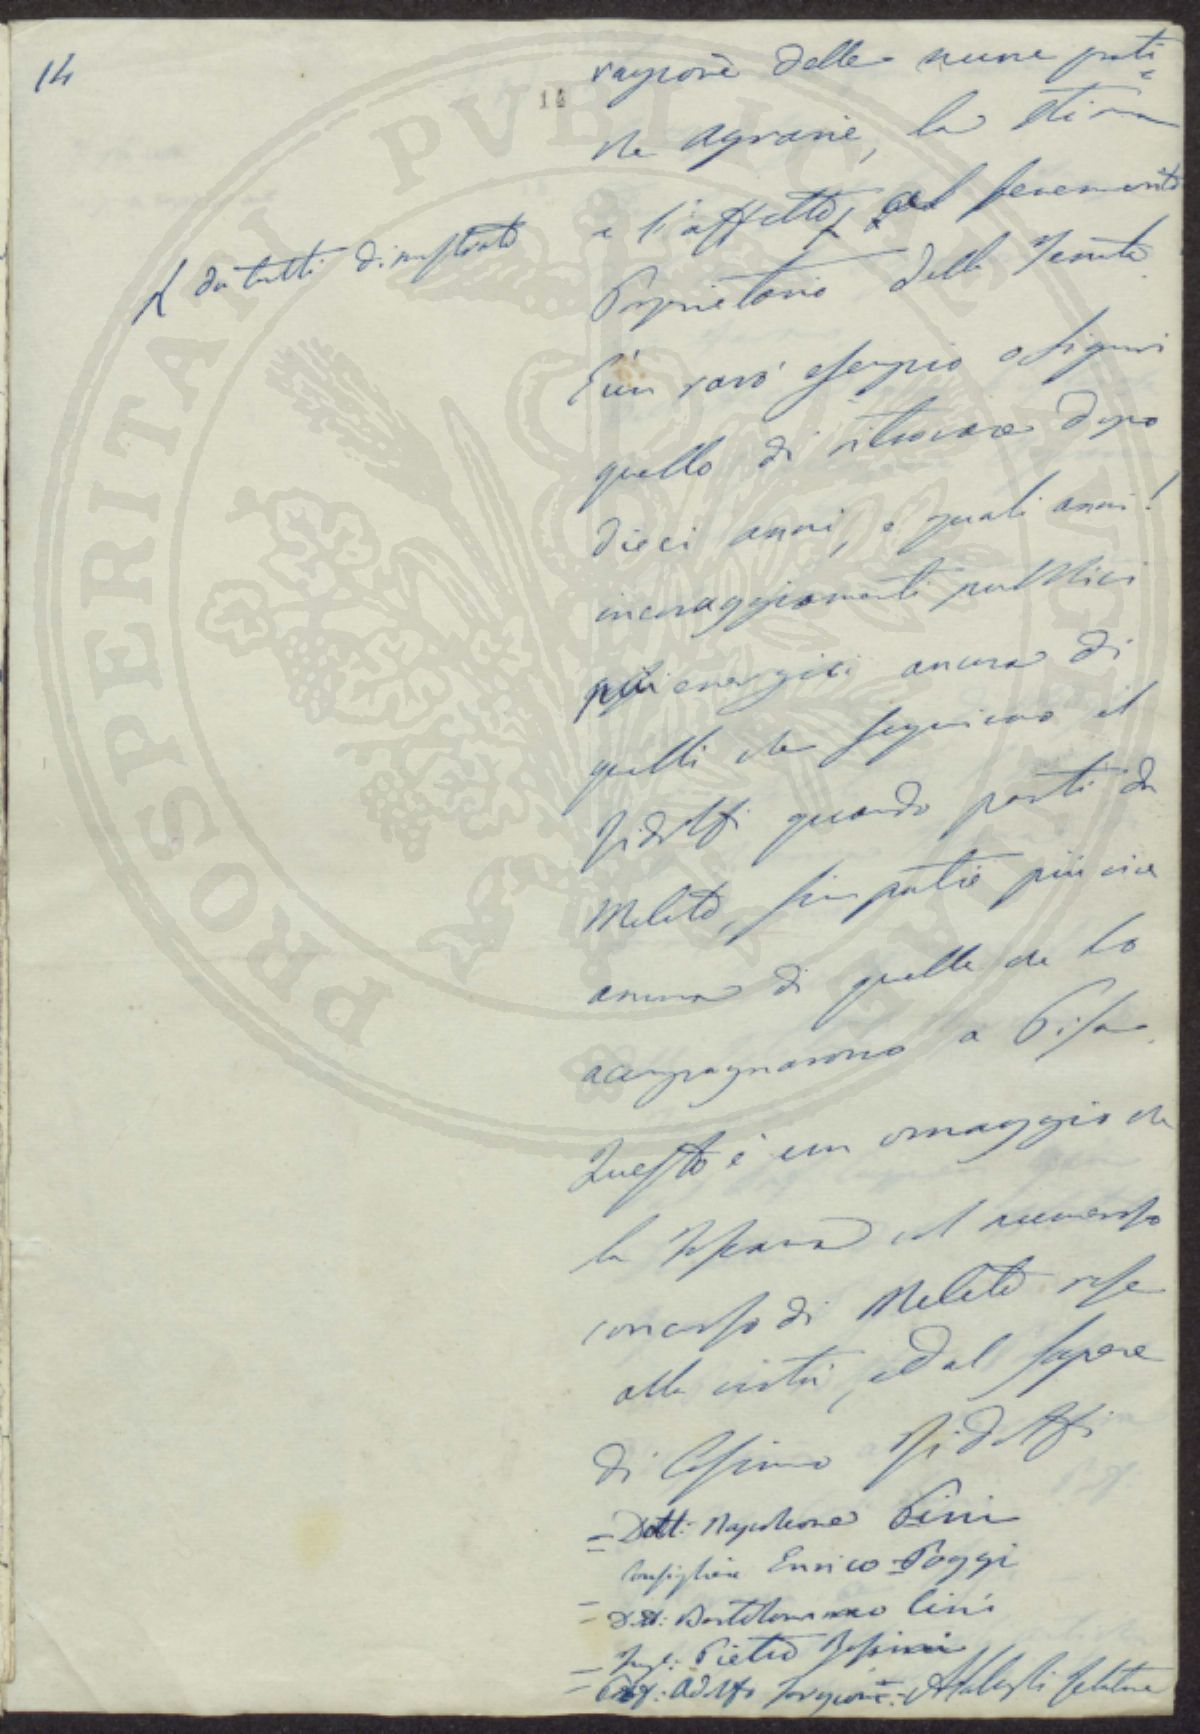 14
14
ragione delle nuove prati
che Agrarie, la stima
e l'affetto, al benemerito
da tutti dimostrato
Proprietario della Tenuta.
È un raro esempio o Signori
quello di ritrovare dopo
dieci anni, e quali anni!
incoraggiamenti pubblici
più energici ancora di
quelli che seguirono il
Ridolfi quando partì da
Meleto, simpatie più vive
ancora di quelle che lo
accompagnarono a Pisa.
Questo è un omaggio che
la Toscana nel numeroso
concorso di Meleto rese
alla virtù, ed al sapere
di Cosimo Ridolfi
= Dott: Napoleone Pini
Consigliere Enrico Poggi
= Dott: Bartolommeo Cini
= Ing: Pietro
= Prof: Adolfo Targioni =
PROSPERITATI PUBLICAE AUGENDAE